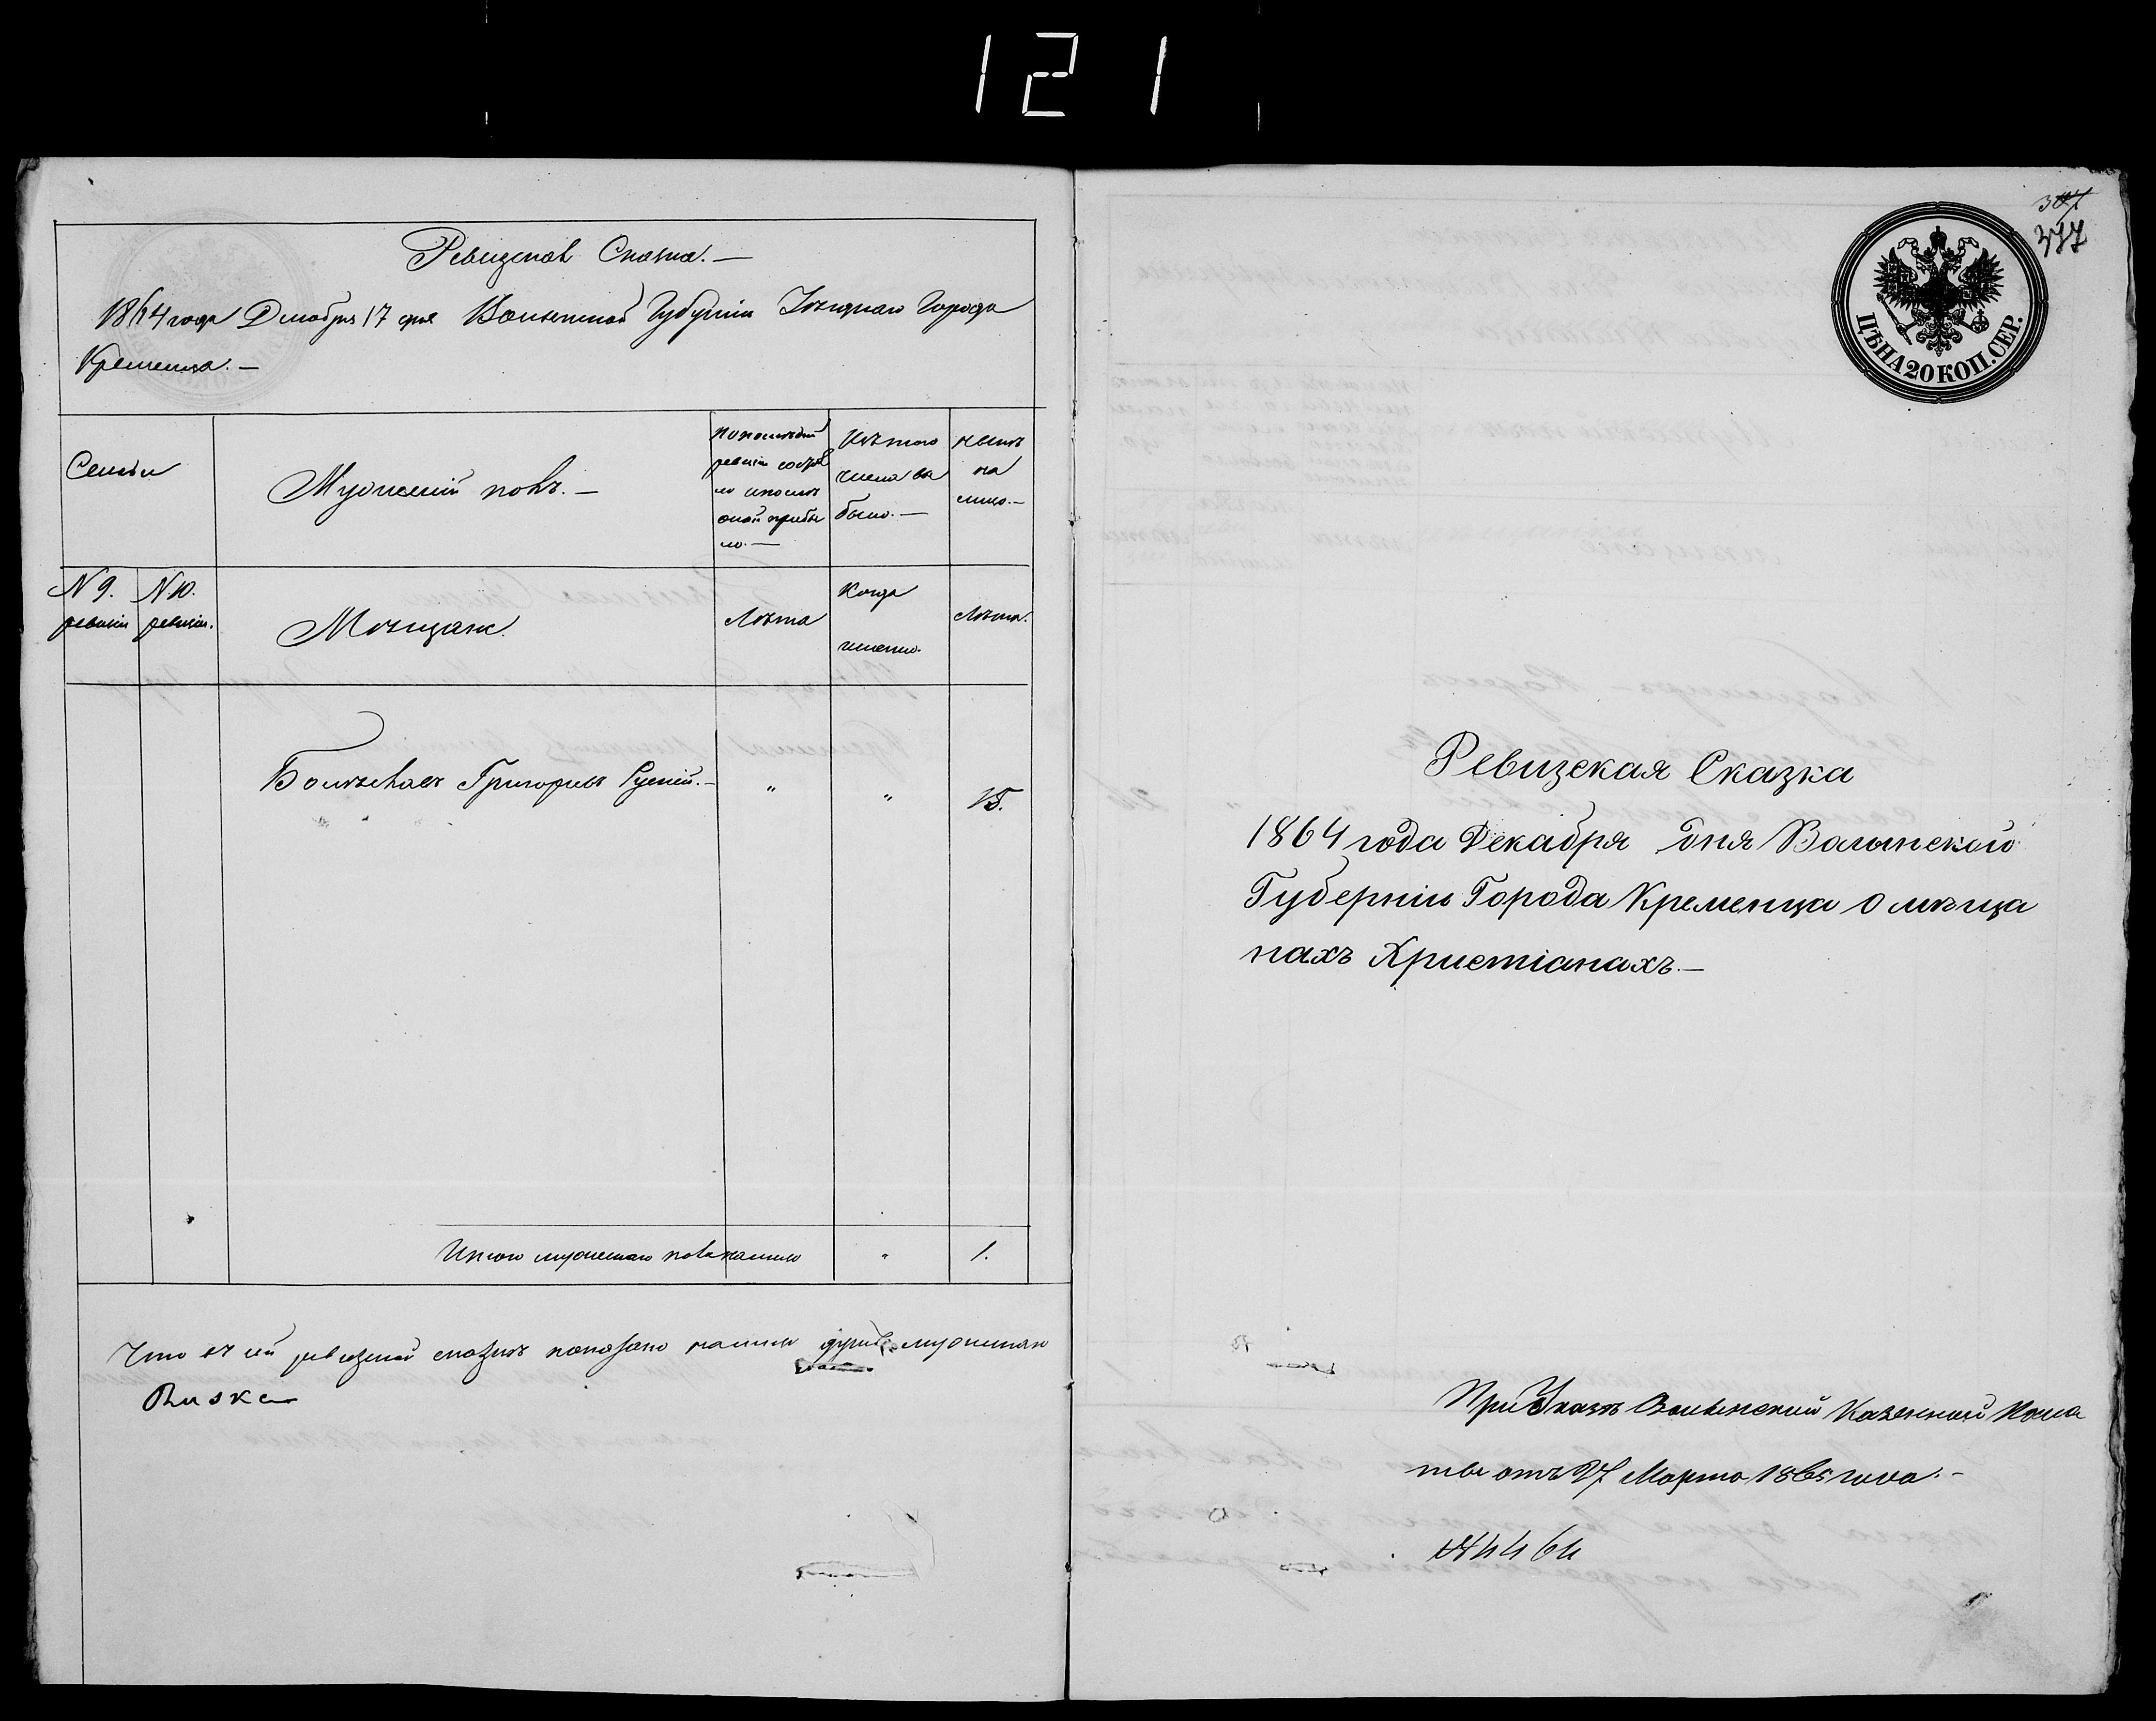 121
Ревизская Сказка. —
1864 года Декабря 17 дня Волынской Губерніи Уѣзднаго Города
Кременца. —
Семьи
Мужескій полъ. —
По послѣдней
ревизіи состоя
ло и послѣ
оной прибы
ло. —
Изъ того
числа вы
было. —
Нынѣ
на
лицо. —
N 9. N 10.
ревизіи ревизіи.
Мѣщане.
Лѣта
Когда
именно.
Лѣта.
Григорьевъ " " 15.
Итого мужескаго пола налицо " 1.
Что въ сей ревизской сказкѣ показано мужеска
307
377
ЦѢНА 20 КОП. СЕР.
Ревизская Сказка
1864 года Декабря дня Волынской
Губерніи Города Кременца о мѣща
нахъ Христіанахъ. —
При Указѣ Волынский Казенный Пала
ты отъ 27 Марта 1865 года. —